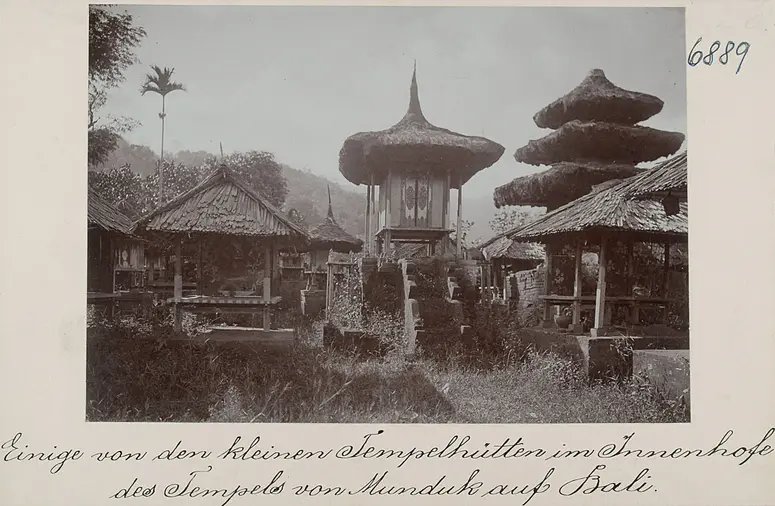 6889
Einige von den kleinen Tempelhütten im Innenhofe
des Tempels von Munduk auf Bali.